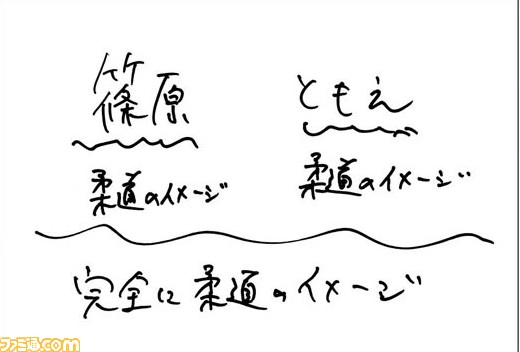 篠原 ともえ
柔道のイメージ 柔道のイメージ
完全に柔道のイメージ
ファミ通.com